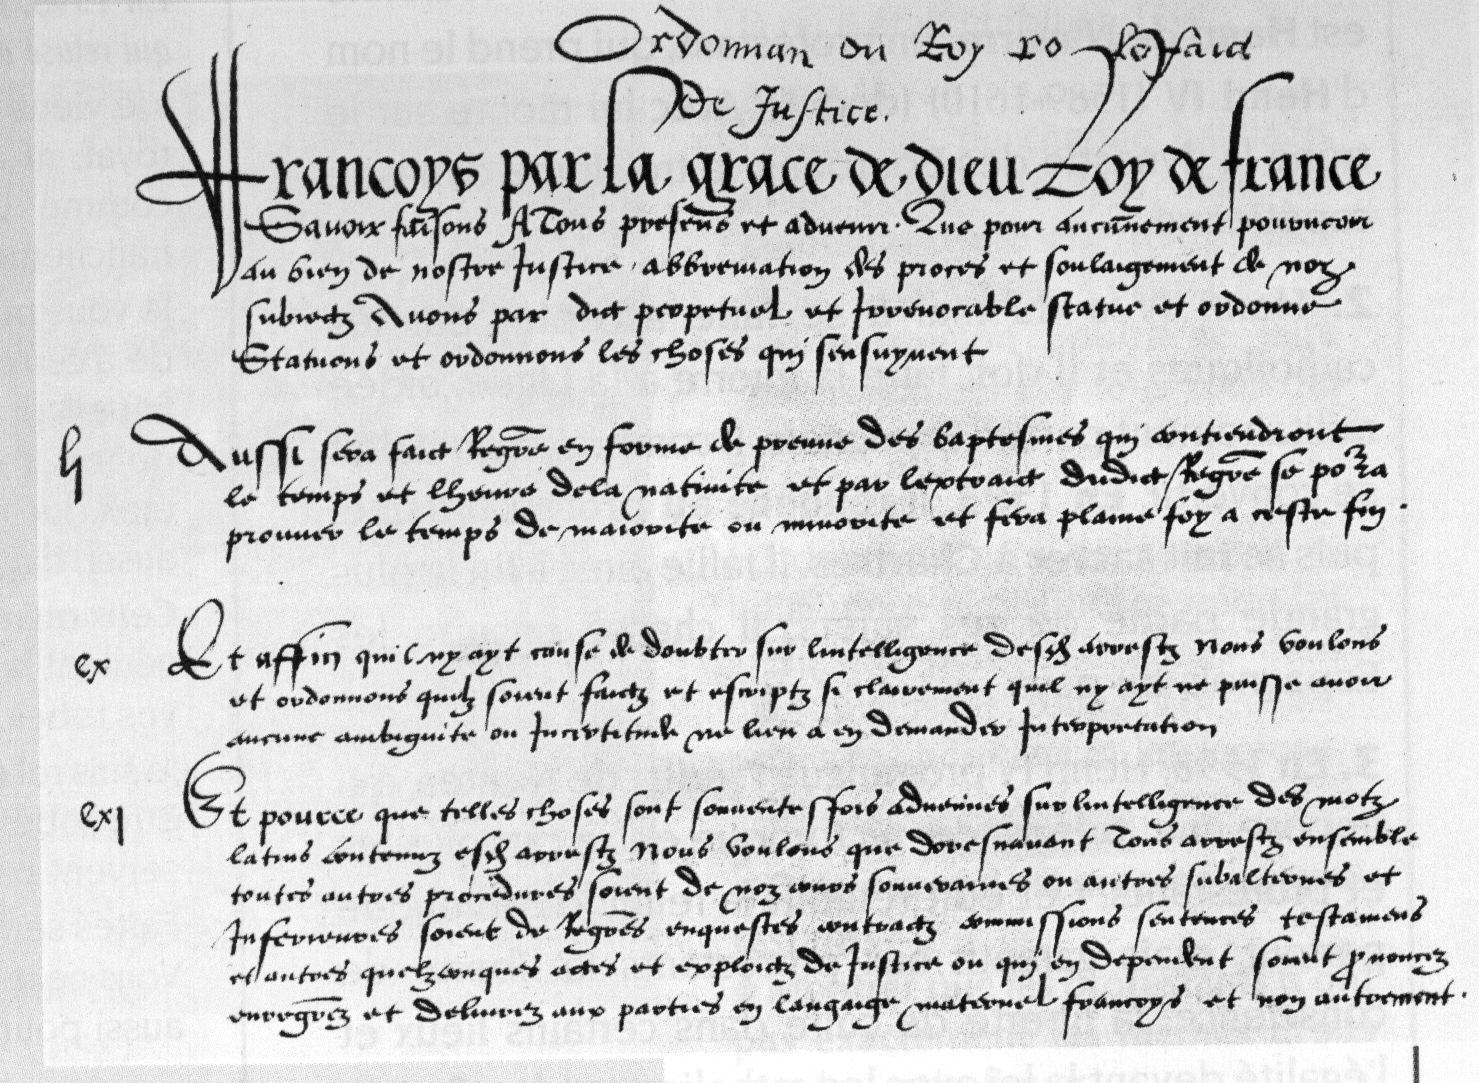 Ordonnan du Roy  de Justice.
Francoys par la grace de dieu Roy de france
Savoir faisons A Tous presens et advenir. Que pour aucunement pourveoir
au bien de nostre Justice, abbreviation des proces et soulaigement de noz
subiectz Avons par dict perpetuel et Irrevocable statue et ordonne
Statuons et ordonnons les choses qui sensuyvent
li Aussi sera faict Regre en forme de preuve des baptesmes qui contiendront
le temps et lheure dela nativite et par lextraict dudict Regre se pora
prouver le temps de maiorite ou minorite et fera plaine foy a ceste fin.
cx Et affin quil ny ayt cause de doubter sur lintelligence desd arrestz Nous voulons
et ordonnons quilz soient faictz et escriptz si clairement quil ny ayt ne puisse avoir
aucune ambiguite ou Incertitude ne lieu a en demander Interpretation
cxj Et pource que telles choses sont souventesffois advenues sur lintelligence des motz
latins contenuz esd arrestz Nous voulons que doresnavant Tous arrestz ensemble
toutes autres procedures soient de noz cours souveraines ou autres subalternes et
Inferieures soient de Regres enquestes contractz commissions sentences testamens
et autres quelzconques actes et exploictz de Justice ou qui en dependent soient pronocez
enregrez et delivrez aux parties en langaige maternel francoys et non autrement.